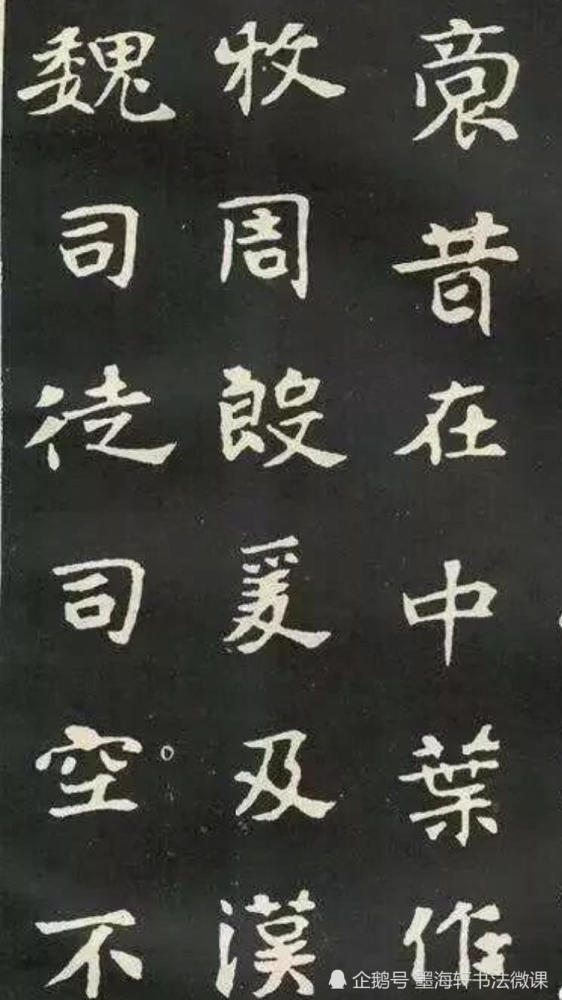 裔昔在中葉作
牧周殷爰及漢
魏司徒司空不
企鹅号 墨海轩书法微课